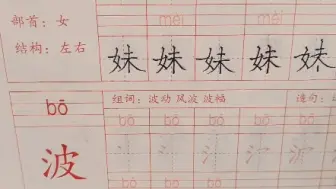 部首：女
mèi mèi
结构：左右
妹 妹 妹 妹 妹
bō
组词：波动 风波 波幅 造句：
bō bō bō bō bō
波
bō bō